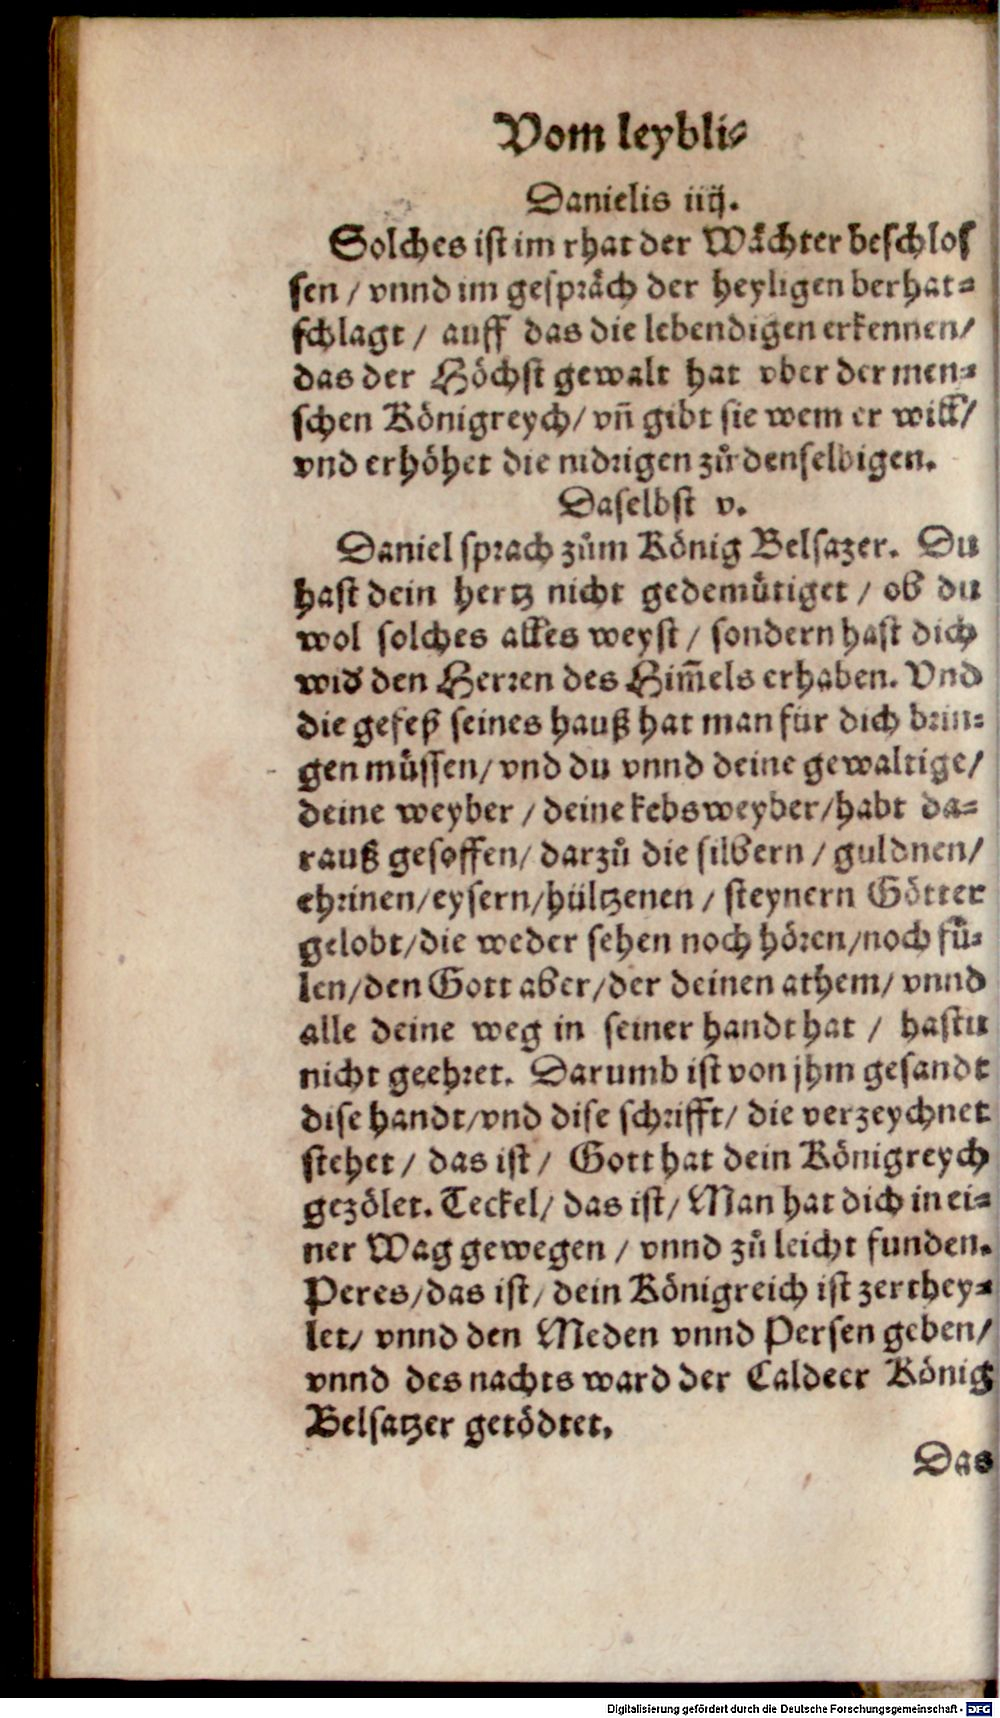 Vom leybli⸗
Danielis iiij.
Solches ist im rhat der Wächter beschlos
sen / vnnd im gespräch der heyligen berhat⸗
schlagt / auff das die lebendigen erkennen/
das der Höchst gewalt hat vber der men⸗
schen Königreych/ vñ gibt sie wem er will/
vnd erhöhet die nidrigen zů denselbigen.
Daselbst v.
Daniel sprach zům König Belsazer. Du
hast dein hertz nicht gedemütiget / ob du
wol solches alles weyst / sondern hast dich
wid den Herren des Him̃els erhaben. Vnd
die gefeß seines hauß hat man für dich brin⸗
gen müssen/ vnd du vnnd deine gewaltige/
deine weyber / deine kebsweyber/habt da⸗
rauß gesoffen/ darzů die silbern / guldnen/
ehrinen/eysern/hültzenen / steynern Götter
gelobt/die weder sehen noch hören/noch fü⸗
len/den Gott aber/der deinen athem/ vnnd
alle deine weg in seiner handt hat / hastu
nicht geehret. Darumb ist von jhm gesandt
dise handt/vnd dise schrifft/ die verzeychnet
stehet / das ist / Gott hat dein Königreych
gezölet. Teckel/ das ist/ Man hat dich in ei⸗
ner Wag gewegen / vnnd zů leicht funden.
Peres/das ist/ dein Königreich ist zerthey⸗
let/ vnnd den Meden vnnd Persen geben/
vnnd des nachts ward der Caldeer König
Belsatzer getödtet.
Das
Digitalisierung gefördert durch die Deutsche Forschungsgemeinschaft - DFG